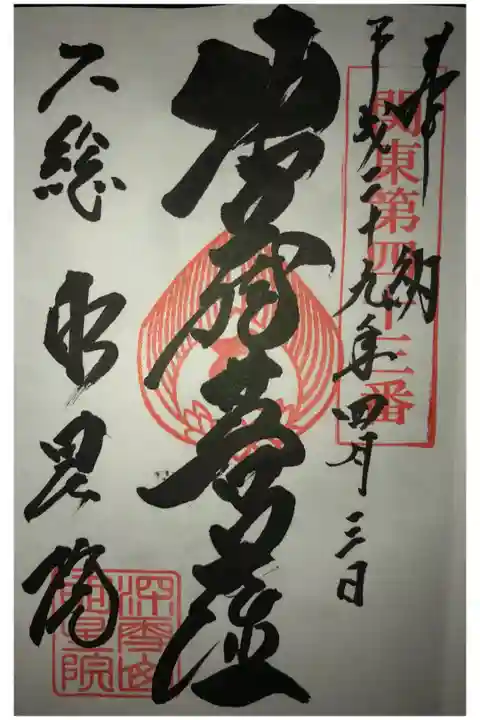 奉納
関東第四十三番
平成二十九年四月三日
虚空蔵菩薩
下総 明星院